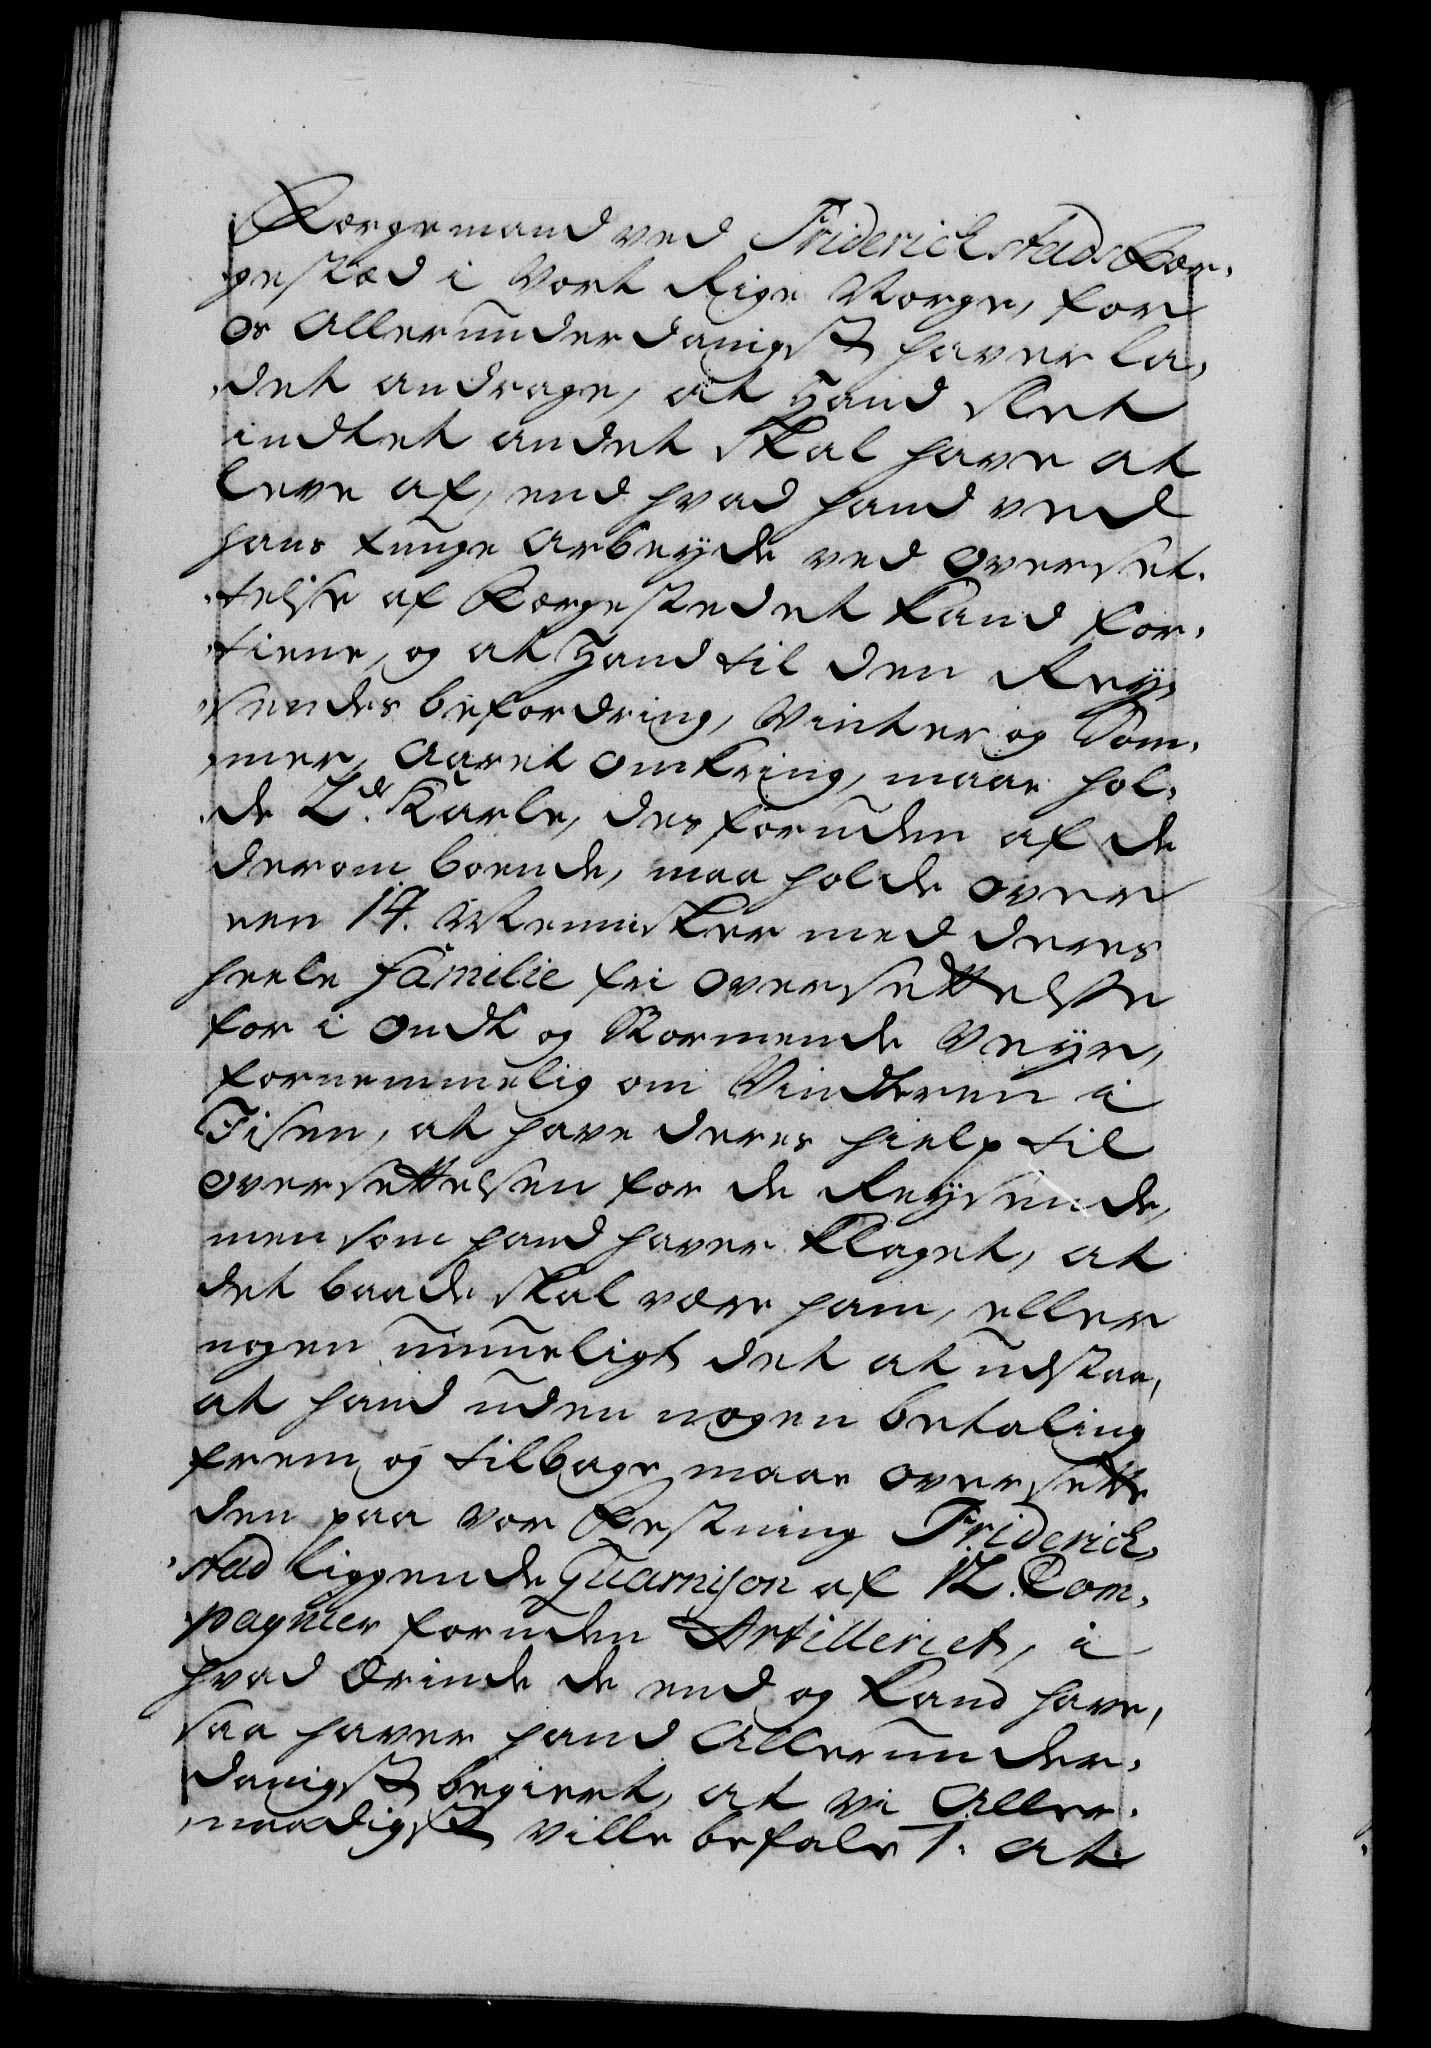 Færgemand ved Friderichstads Fær-
gestæd i Vort Rige Norge, for
os allerunderdanigst haver la-
det andrage, at Hand slet
indtet andet skal have at
leve af, end hvad hand ved
hans tunge Arbeyde ved overset-
telse af Færgestedet kand for-
tiene, og at Hand til den Rey-
sendes befordring, Vinter og Som-
mer, Aaret omkring, maae hol-
de 2de Karle, desforuden af de
derom boende, maa holde over
een 14. Mennisker med deres
heele Familie fri oversettelse
for i ondt og stormende Veyr,
fornemmelig om Vinteren i
Iisen, at have deres hielp til
oversettelsen for de Reysende,
men som hand haver klaget, at
det baade skal være ham, eller
nogen umueligt det at udstaae,
at hand uden nogen betaling
frem og tilbage maae oversette
den paa vor Festning Friderich-
stad liggende Guarnison af 12. Com-
pagnier foruden Artilleriet, i
hvad Ærinde de end og kand have,
saa haver hand Allerunder-
danigst begiert, at vi Aller-
naadigst ville befale 1. at